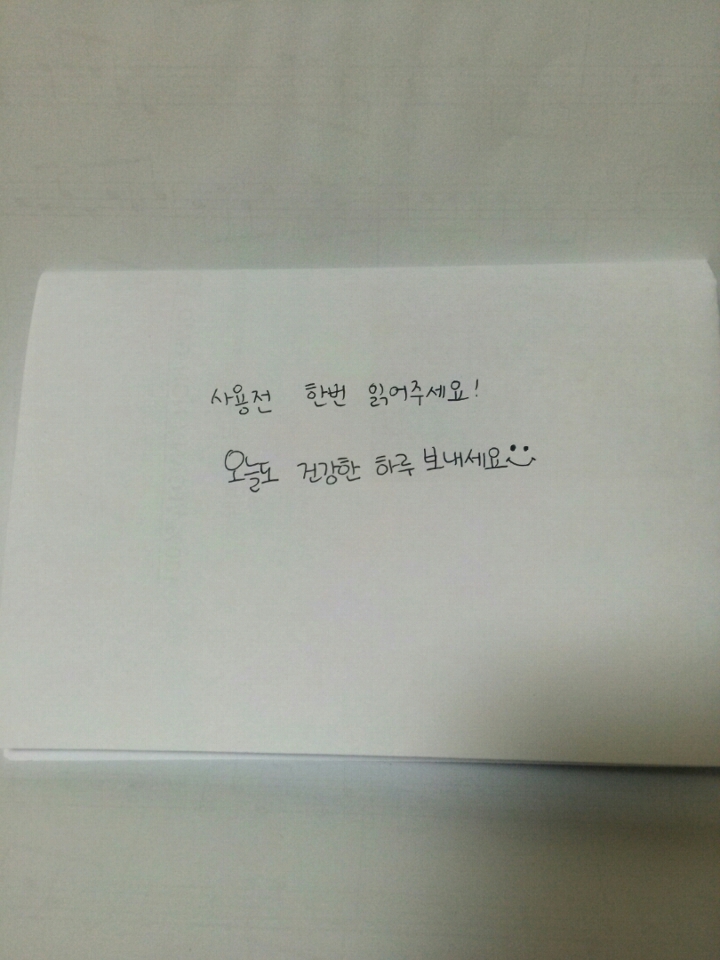 사용전 한번 읽어주세요!
오늘도 건강한 하루 보내세요